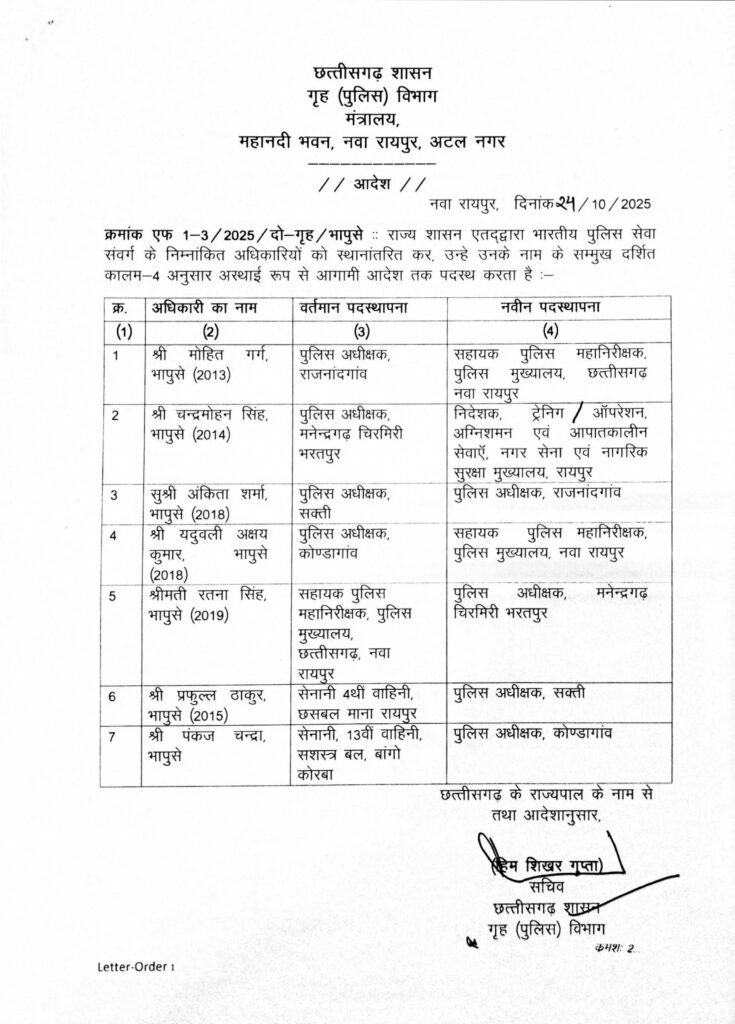 छत्तीसगढ़ शासन
गृह (पुलिस) विभाग
मंत्रालय,
महानदी भवन, नवा रायपुर, अटल नगर
// आदेश //
नवा रायपुर, दिनांक 24/10/2025
क्रमांक एफ 1-3/2025/दो-गृह/भापुसे :: राज्य शासन एतद्द्वारा भारतीय पुलिस सेवा
संवर्ग के निम्नांकित अधिकारियों को स्थानांतरित कर, उन्हे उनके नाम के सम्मुख दर्शित
कालम-4 अनुसार अस्थाई रूप से आगामी आदेश तक पदस्थ करता है :-
क्र. अधिकारी का नाम वर्तमान पदस्थापना नवीन पदस्थापना
(1) (2) (3) (4)
1 श्री मोहित गर्ग, पुलिस अधीक्षक, सहायक पुलिस महानिरीक्षक,
भापुसे (2013) राजनांदगांव पुलिस मुख्यालय, छत्तीसगढ़
नवा रायपुर
2 श्री चन्द्रमोहन सिंह, पुलिस अधीक्षक, निदेशक, ट्रेनिग / ऑपरेशन,
भापुसे (2014) मनेन्द्रगढ़ चिरमिरी अग्निशमन एवं आपातकालीन
भरतपुर सेवाऍ, नगर सेना एवं नागरिक
सुरक्षा मुख्यालय, रायपुर
3 सुश्री अंकिता शर्मा, पुलिस अधीक्षक, पुलिस अधीक्षक, राजनांदगांव
भापुसे (2018) सक्ती
4 श्री यदुवली अक्षय पुलिस अधीक्षक, सहायक पुलिस महानिरीक्षक,
कुमार, भापुसे कोण्डागांव पुलिस मुख्यालय, नवा रायपुर
(2018)
5 श्रीमती रतना सिंह, सहायक पुलिस पुलिस अधीक्षक, मनेन्द्रगढ़
भापुसे (2019) महानिरीक्षक, पुलिस चिरमिरी भरतपुर
मुख्यालय,
छत्तीसगढ़, नवा
रायपुर
6 श्री प्रफुल्ल ठाकुर, सेनानी 4थीं वाहिनी, पुलिस अधीक्षक, सक्ती
भापुसे (2015) छसबल माना रायपुर
7 श्री पंकज चन्द्रा, सेनानी, 13वीं वाहिनी, पुलिस अधीक्षक, कोण्डागांव
भापुसे सशस्त्र बल, बांगो
कोरबा
छत्तीसगढ़ के राज्यपाल के नाम से
तथा आदेशानुसार,
(हिम शिखर गुप्ता)
सचिव
छत्तीसगढ़ शासन
गृह (पुलिस) विभाग
कमशः 2...
Letter-Order 1